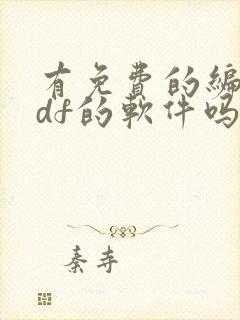 有免费的编
df的软件吗
秦寺